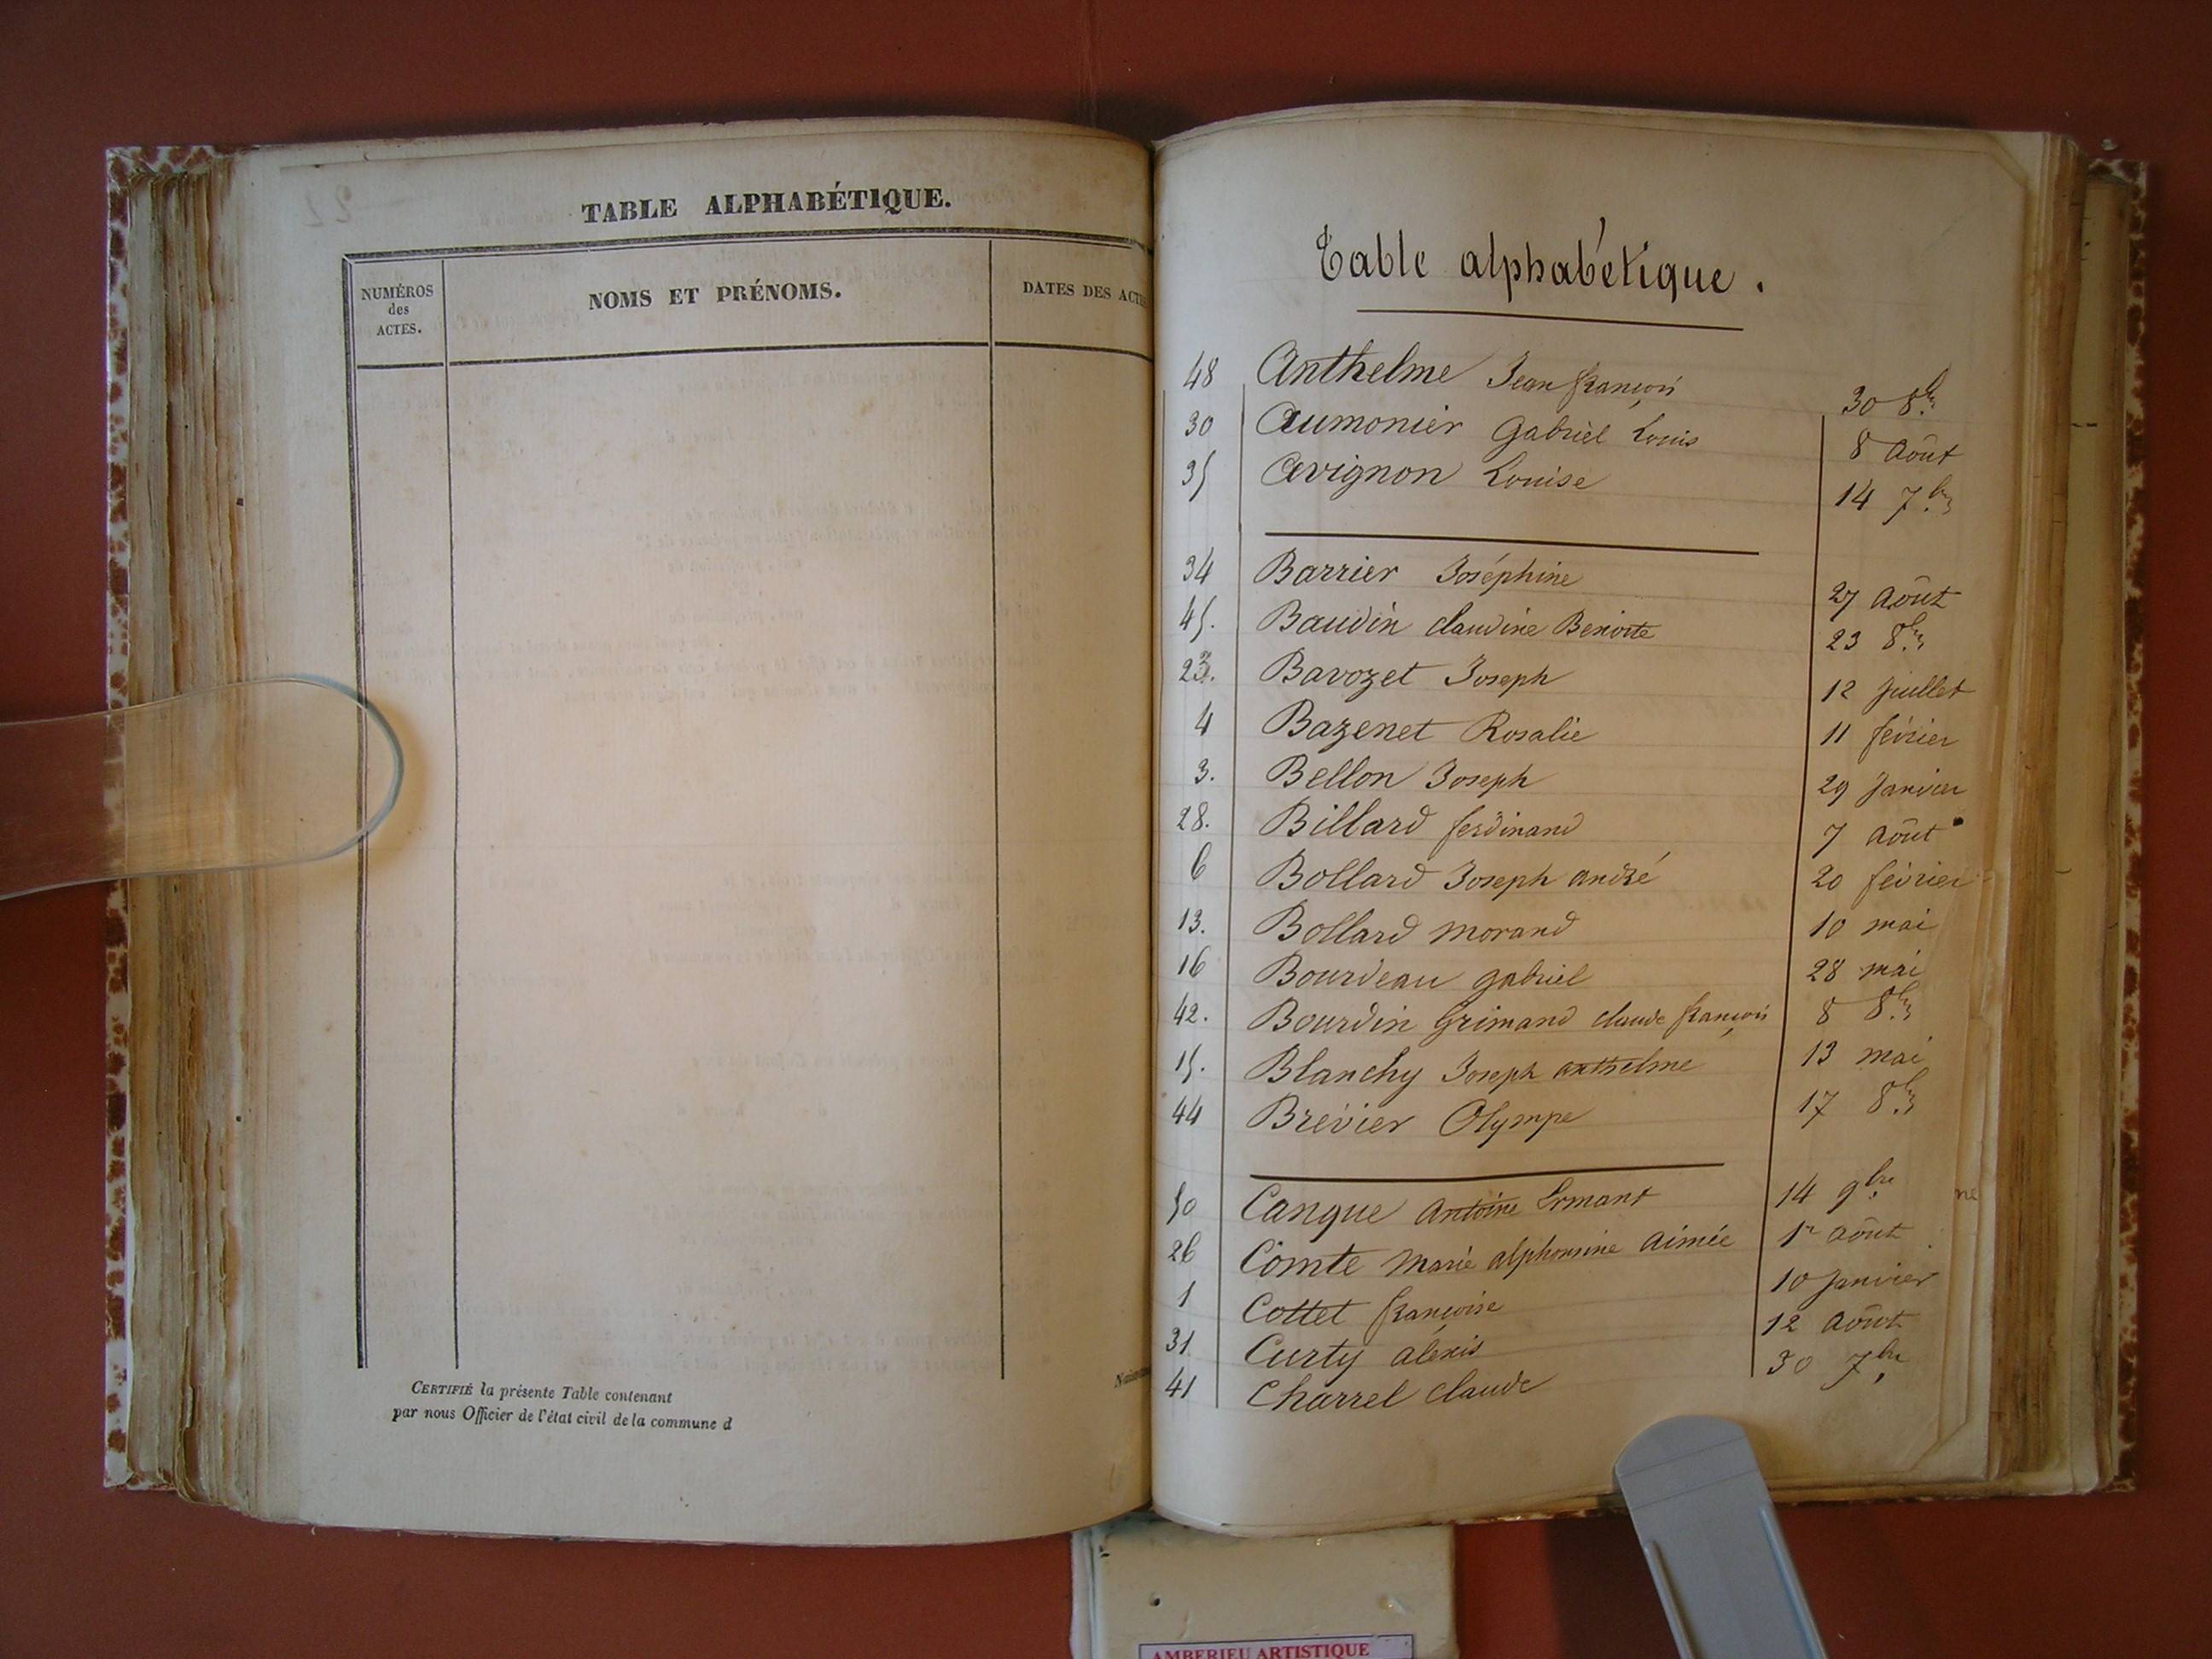 TABLE ALPHABÉTIQUE.
NUMÉROS
des
ACTES.
NOMS ET PRÉNOMS.
DATES DES ACTE
CERTIFIÉ la présente Table contenant
par nous Officier de l'état civil de la commune d
Table alphabétique.
48 Anthelme Jean françois 30 8bre
30 Aumonier Gabriel Louis 8 Août
35 Avignon Louise 14 7bre
34 Barrier Joséphine 27 Août
45. Baudin claudine Benoite 23 8bre
23. Bavozet Joseph 12 Juillet
4 Bazenet Rosalie 11 février
3. Bellon Joseph 29 Janvier
28. Billard ferdinand 7 Août
6 Bollard Joseph andré 20 février
13. Bollard morand 10 mai
16 Bourdeau gabriel 28 mai
42. Bourdin Grimand claude françois 8 8bre
15. Blanchy Joseph anthelme 13 mai
44 Brévier Olympe 17 8bre
50 Canque Antoine Ermant 14 9bre
26 Comte Marie alphonsine Aimée 1er Août
1 Cottet françoise 10 Janvier
31 Curty alexis 12 Août
41 Charrel claude 30 7bre
ne
AMBERIEU ARTISTIQUE